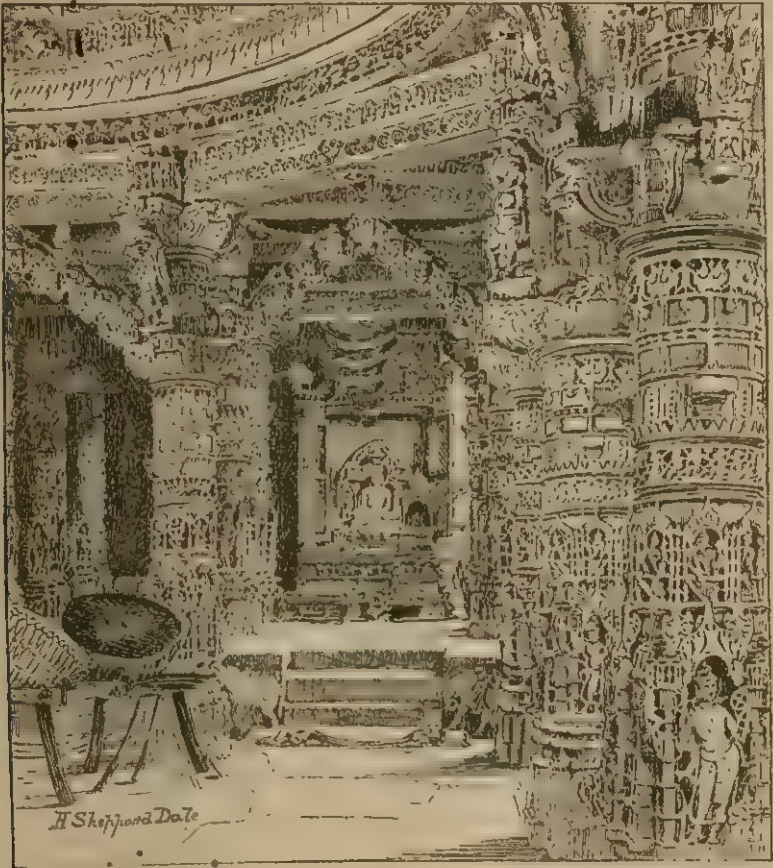 H Sheppard Dale